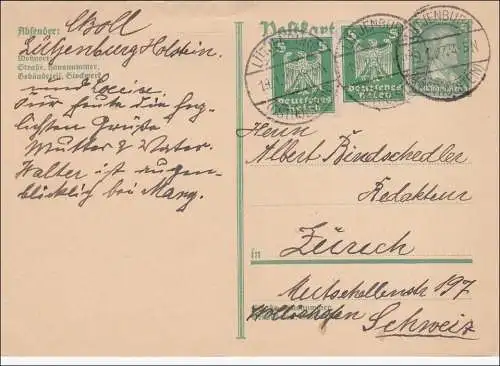 Absender: Scholl
Lütjenburg Holstein.
Wohnort
Straße, Hausnummer,
Gebäudeteil, Stockwerk
und
Für heute die herz-
lichsten Grüße
Mutter & Vater.
Walter ist augen-
blicklich bei Mang.
Postkarte
LÜTJENBURG
5 5
Deutsches Reich
Deutsches Reich
Herrn
Albert Bindschedler
Redakteur
in Zürich
Mutschellenstr 197
Wollishofen
Schweiz